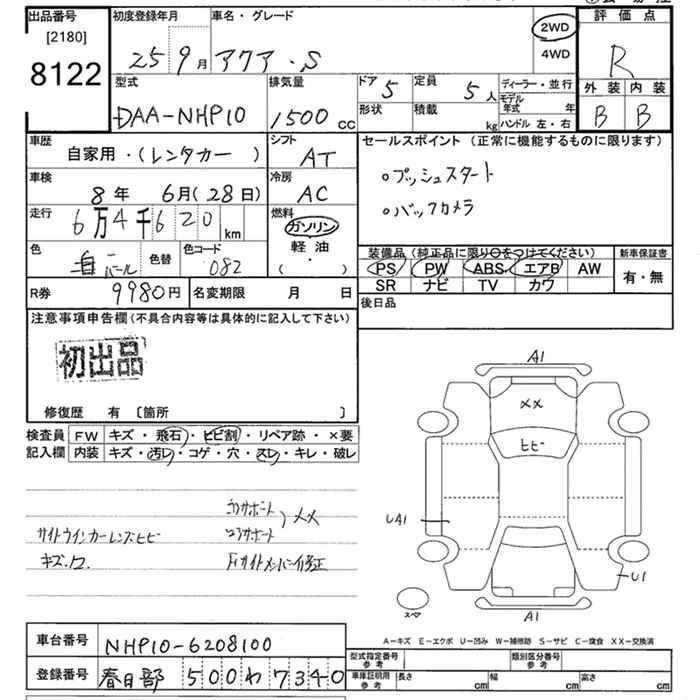 出品番号 初度登録年月 車名・グレード 2WD 評価点
[2180] 25 9月 アクア・S 4WD R
8122 型式 排気量 ドア 5 定員 5人 ディーラー・並行 外装 内装
DAA-NHP10 1500cc 形状 積載 kg モデル年式 年 B B
ハンドル 左・右
車歴 自家用・(レンタカー ) シフト AT セールスポイント (正常に機能するものに限ります)
車検 8年 6月(28日) 冷房 AC ○プッシュスタート
走行 6万4千620km 燃料 ガソリン ○バックカメラ
色 パール 色替 色コード 082 軽油 ( ・ )
装備品(純正品に限り○をつけてください) 新車保証書
PS PW ABS エアB AW 有・無
SR ナビ TV カワ
R券 9980円 名変期限 月 日 後日品
注意事項申告欄(不具合内容等は具体的に記入して下さい)
初出品
修復歴 有 [箇所 ]
検査員 FW キズ・飛石・ヒビ割・リペア跡・×要
記入欄 内装 キズ・汚レ・コゲ・穴・スレ・キレ・破レ
A1
××
ヒビ
UA1
U1
スペア
A1
コアサポート
サイドウインカーレンズヒビ ××
キズ・凹
A-キズ E-エクボ U-凹み W-補修跡 S-サビ C-腐食 XX-交換済
車台番号 NHP10-6208100
登録番号 春日部 500 わ 7340
型式指定番号 参考 類別区分番号 参考
車庫証明用 参考 長さ cm 幅 cm 高さ cm